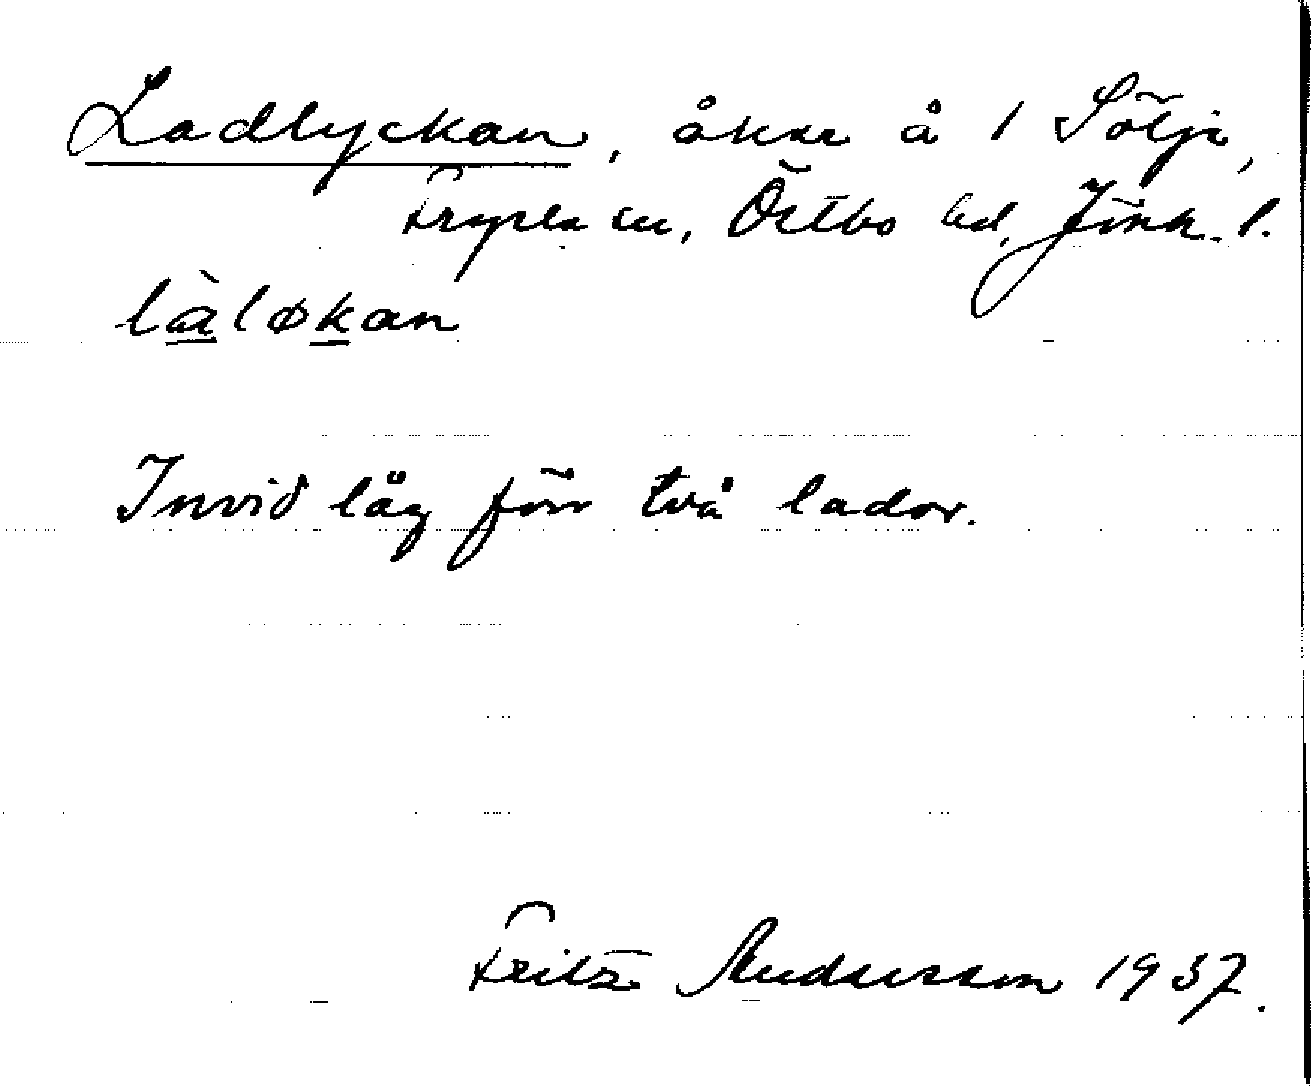 Ladlyckan, åker å 1 Sölje,
Fryele sn, Östbo hd, Jönk. l.
làløkan
Invid låg förr två lador.
Fritz Andersson 1937.